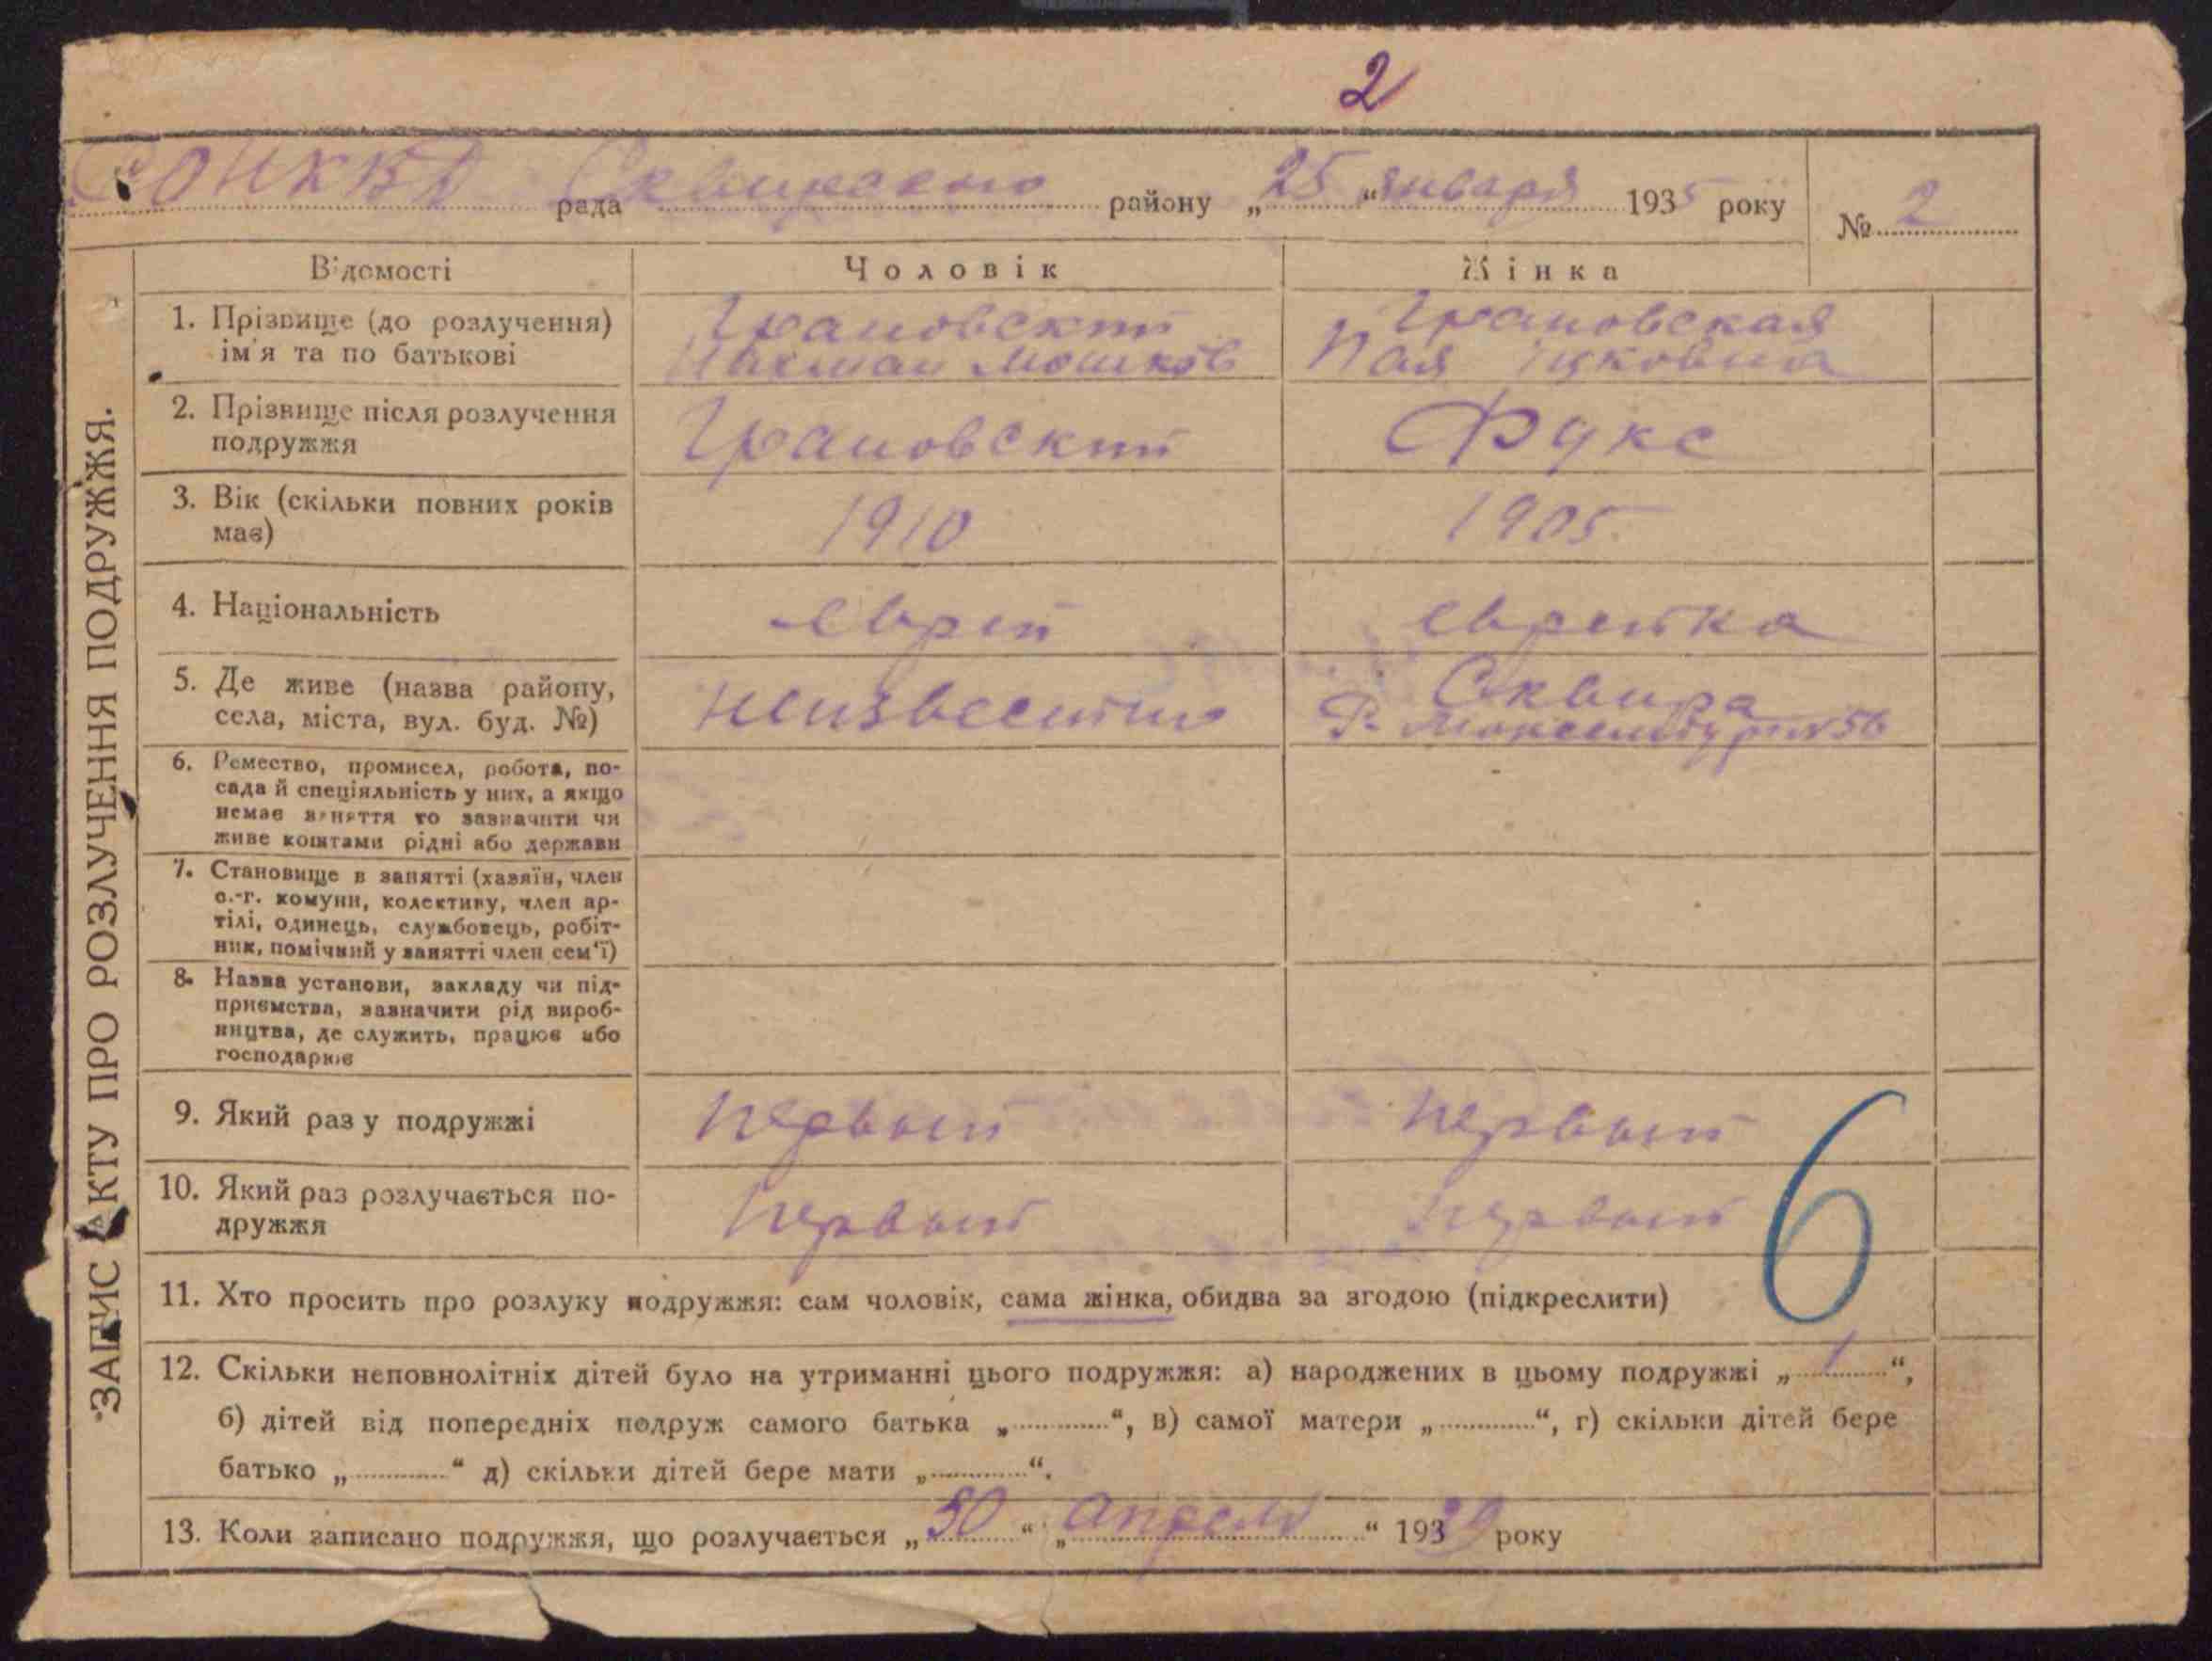 2
РОНКВД рада Сквирского району „25“ января 1935 року № 2
ЗАПИС АКТУ ПРО РОЗЛУЧЕННЯ ПОДРУЖЖЯ.
Відомості Чоловік Жінка
1. Прізвище (до розлучення) Грановский Грановская
ім'я та по батькові Нахман Мошков Ицковна
2. Прізвище після розлучення
подружжя Грановский Фукс
3. Вік (скільки повних років
має) 1910 1905
4. Національність еврей еврейка
5. Де живе (назва району, Сквира
села, міста, вул. буд. №) неизвестно Р. 56
6. Ремество, промисел, робота, по-
сада й спеціяльність у них, а якщо
немає заняття то зазначити чи
живе коштами рідні або держави
7. Становище в занятті (хазяїн, член
с.-г. комуни, колективу, член ар-
тілі, одинець, службовець, робіт-
ник, помічний у занятті член сем'ї)
8. Назва установи, закладу чи під-
приємства, зазначити рід вироб-
ництва, де служить, працює або
господарює
9. Який раз у подружжі первый первый
10. Який раз розлучається по-
дружжя первый первый
6
11. Хто просить про розлуку подружжя: сам чоловік, сама жінка, обидва за згодою (підкреслити)
12. Скільки неповнолітніх дітей було на утриманні цього подружжя: а) народжених в цьому подружжі „1“,
б) дітей від попередніх подруж самого батька „............“, в) самої матери „............“, г) скільки дітей бере
батько „............“ д) скільки дітей бере мати „............“.
13. Коли записано подружжя, що розлучається „30“ „апреля“ 193 року